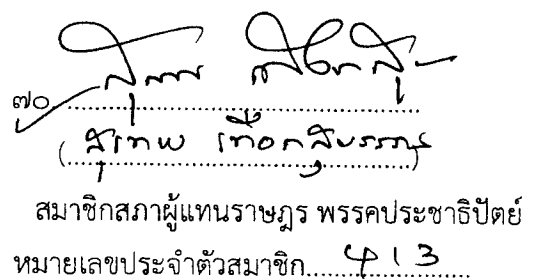 ๗๐
(สุเทพ เทือกสุบรรณ)
สมาชิกสภาผู้แทนราษฎร พรรคประชาธิปัตย์
หมายเลขประจำตัวสมาชิก 413